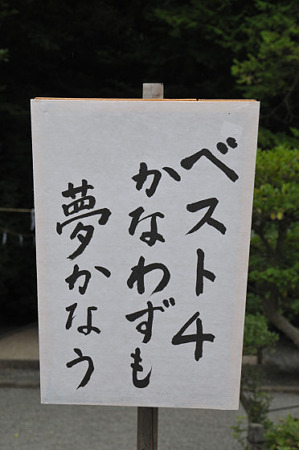 ベスト4
かなわずも
夢かなう